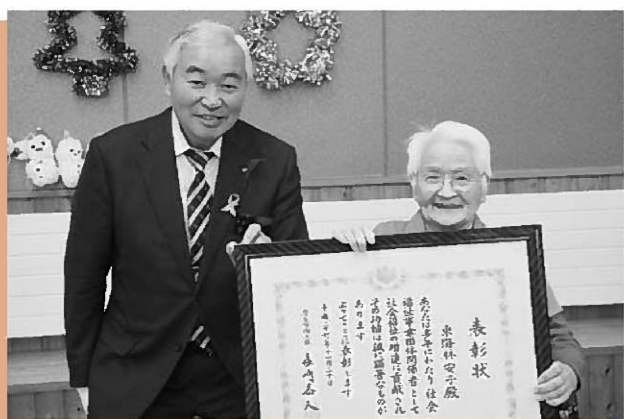 表彰状
東海林安子殿
あなたは多年にわたり社会
福祉事業団体関係者として
社会福祉の増進に貢献された
その功績は誠に顕著なものが
あります
よってここに表彰します
平成二十七年十一月二十日